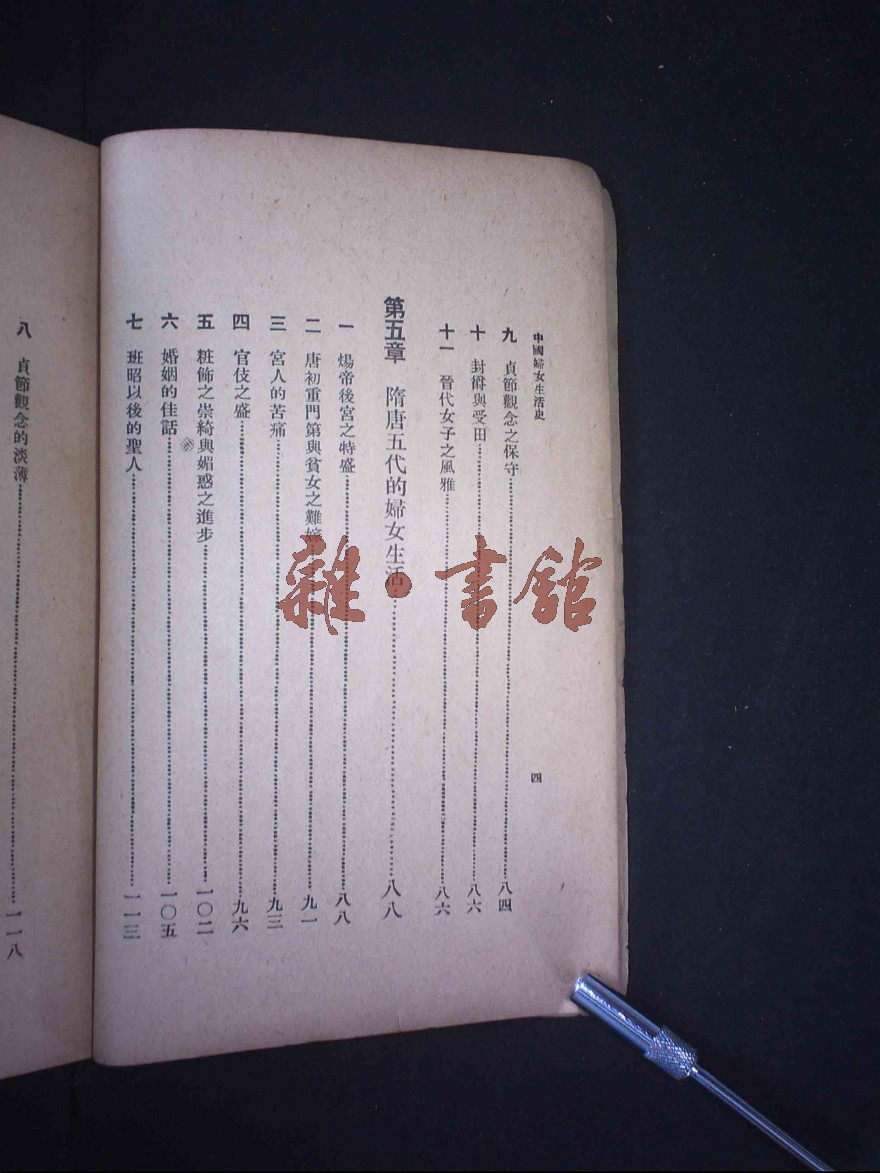 中國婦女生活史
四
九 貞節觀念之保守……八四
十 封爵與受田……八六
十一 晉代女子之風雅……八六
第五章 隋唐五代的婦女生活……八八
一 煬帝後宮之特盛……八八
二 唐初重門第與貧女之難嫁……九一
三 宮人的苦痛……九三
四 官伎之盛……九六
五 粧飾之崇綺與媚惑之進步……一〇二
六 婚姻的佳話……一〇五
七 班昭以後的聖人……一一三
八 貞節觀念的淡薄……一一八
雜·書館